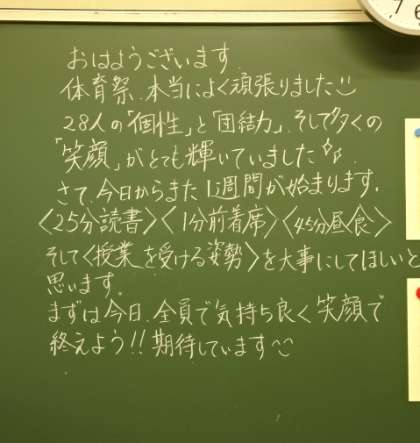 おはようございます.
体育祭、本当によく頑張りました
28人の「個性」と「団結力」、そして多くの
「笑顔」がとても輝いていました
さて、今日からまた1週間が始まります.
〈25分読書〉〈1分前着席〉〈45分昼食〉
そして〈授業を受ける姿勢〉を大事にしてほしいと
思います.
まずは今日、全員で気持ち良く笑顔で
終えよう!!期待しています
7
6